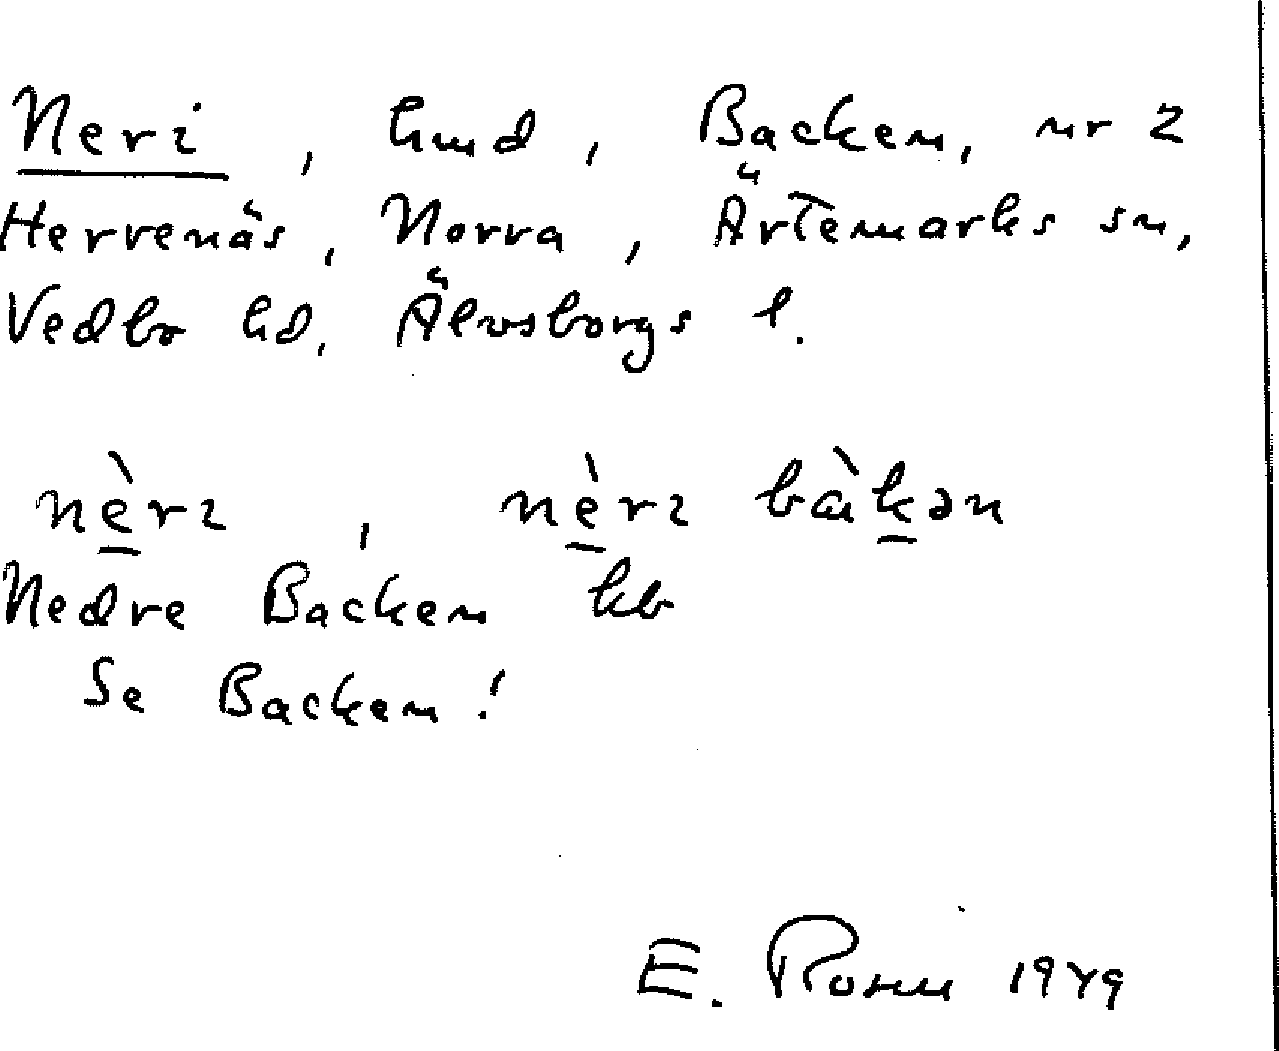 Neri, hmd, Backen, nr 2
Hervenäs, Norra, Ärtemarks sn,
Vedbo hd, Älvsborgs l.
nè̱rɩ, nè̱rɩ bàḵən
Nedre Backen kb
Se Backen!
E. 1979